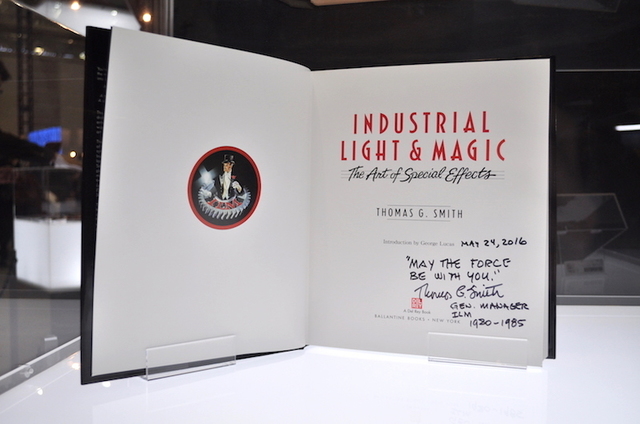 INDUSTRIAL
LIGHT & MAGIC
The Art of Special Effects
THOMAS G. SMITH
Introduction by George Lucas
MAY 24, 2016
"MAY THE FORCE
BE WITH YOU."
Thomas G. Smith
GEN. MANAGER
ILM
1980-1985
A Del Rey Book
BALLANTINE BOOKS • NEW YORK